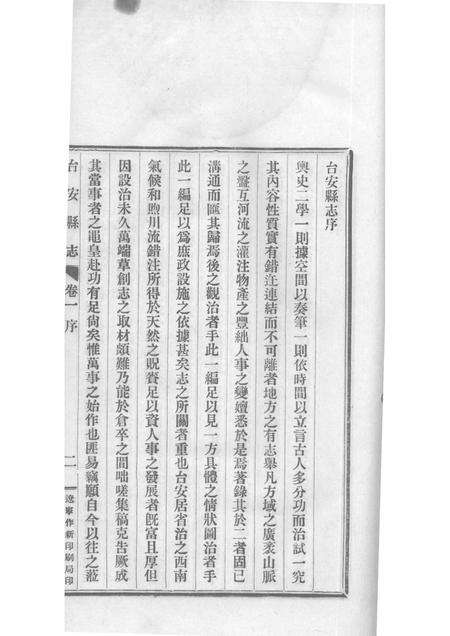 台安縣志序
輿史二學一則據空間以奏筆一則依時間以立言古人多分功而治試一究
其內容性質實有錯注連結而不可離者地方之有志舉凡方域之廣袤山脈
之盤互河流之灌注物產之豐絀人事之變嬗悉於是焉著錄其於二者固已
溝通而匯其歸焉後之觀治者手此一編足以見一方具體之情狀圖治者手
此一編足以爲庶政設施之依據甚矣志之所關者重也台安居省治之西南
氣候和煦川流錯注所得於天然之貺賚足以資人事之發展者旣富且厚但
因設治未久萬端草創志之取材頗難乃能於倉卒之間咄嗟集稿克告厥成
其當事者之黽皇赴功有足尙矣惟萬事之始作也匪易竊願自今以往之蒞
台安縣志
卷一
序
二
遼寧作新印刷局印